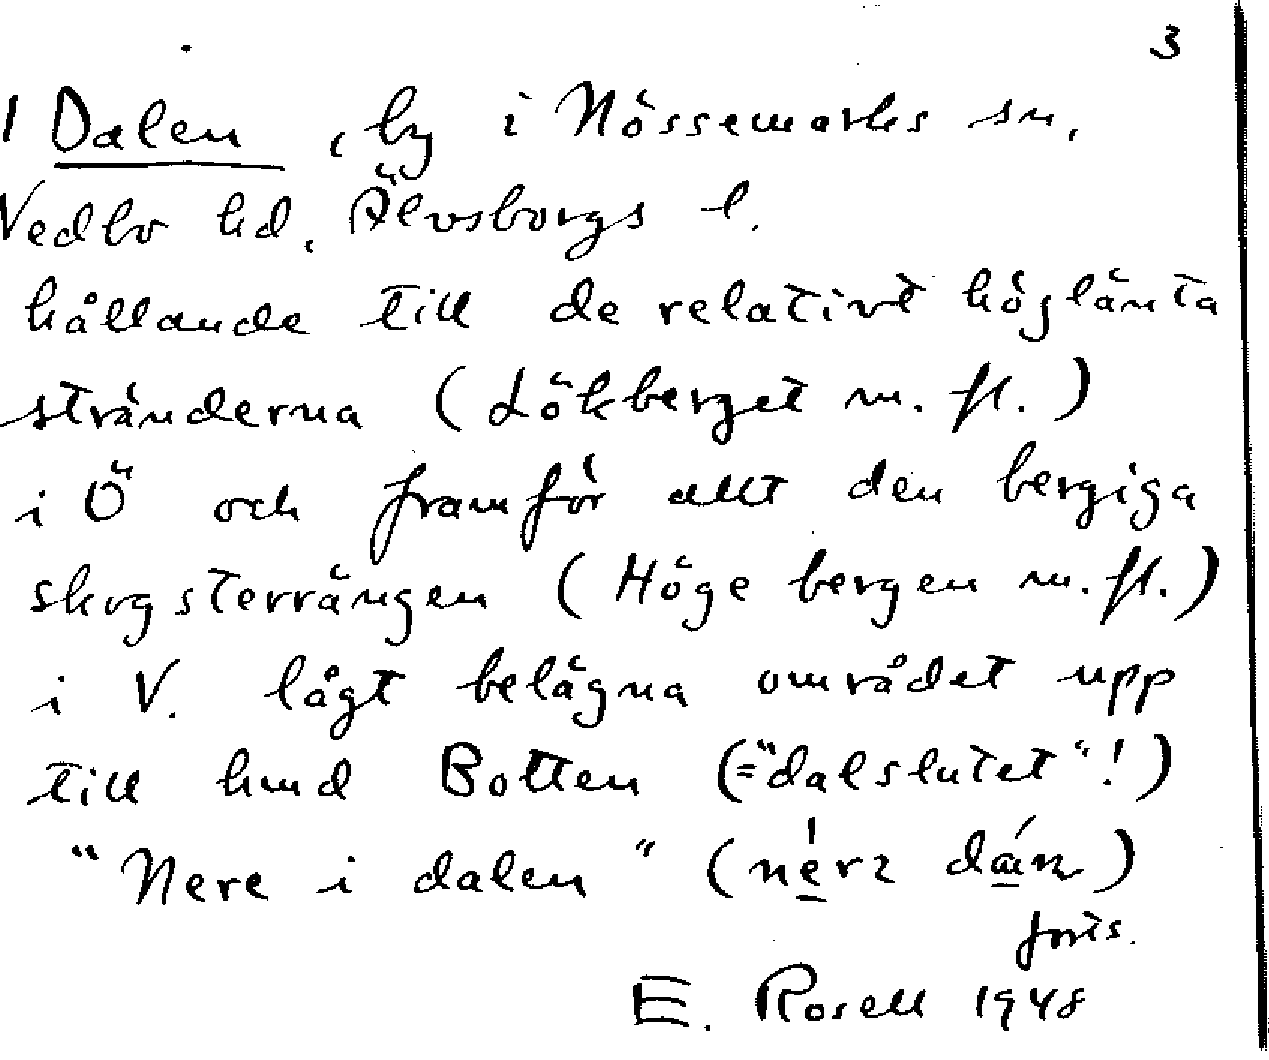 3
1 Dalen, by i Nössemarks sn,
Vedbo hd, Älvsborgs l.
hållande till de relativt höglänta
stränderna (Lökberget m. fl.)
i Ö och framför allt den bergiga
skogsterrängen (Höge bergen m. fl.)
i V. lågt belägna området upp
till hmd Botten (="dalslutet"!)
"Nere i dalen" (
forts.
E. Rosell 1948